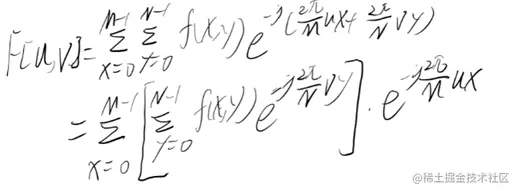 F[u,v]=\sum_{x=0}^{M-1}\sum_{y=0}^{N-1} f(x,y)e^{-j(\frac{2π}{M}ux+\frac{2π}{N}vy)}
=\sum_{x=0}^{M-1}[\sum_{y=0}^{N-1} f(x,y)e^{-j\frac{2π}{N}vy}]·e^{-j\frac{2π}{M}ux}
@稀土掘金技术社区